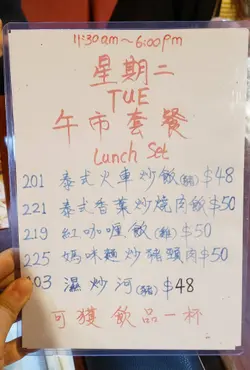 11:30am～6:00pm
星期二
TUE
午市套餐
Lunch Set
201 泰式火車炒飯(豬)$48
221 泰式香葉炒燒肉飯$50
219 紅咖喱飯(雞)$50
225 媽咪麵炒豬頸肉$50
203 濕炒河(豬)$48
可獲飲品一杯